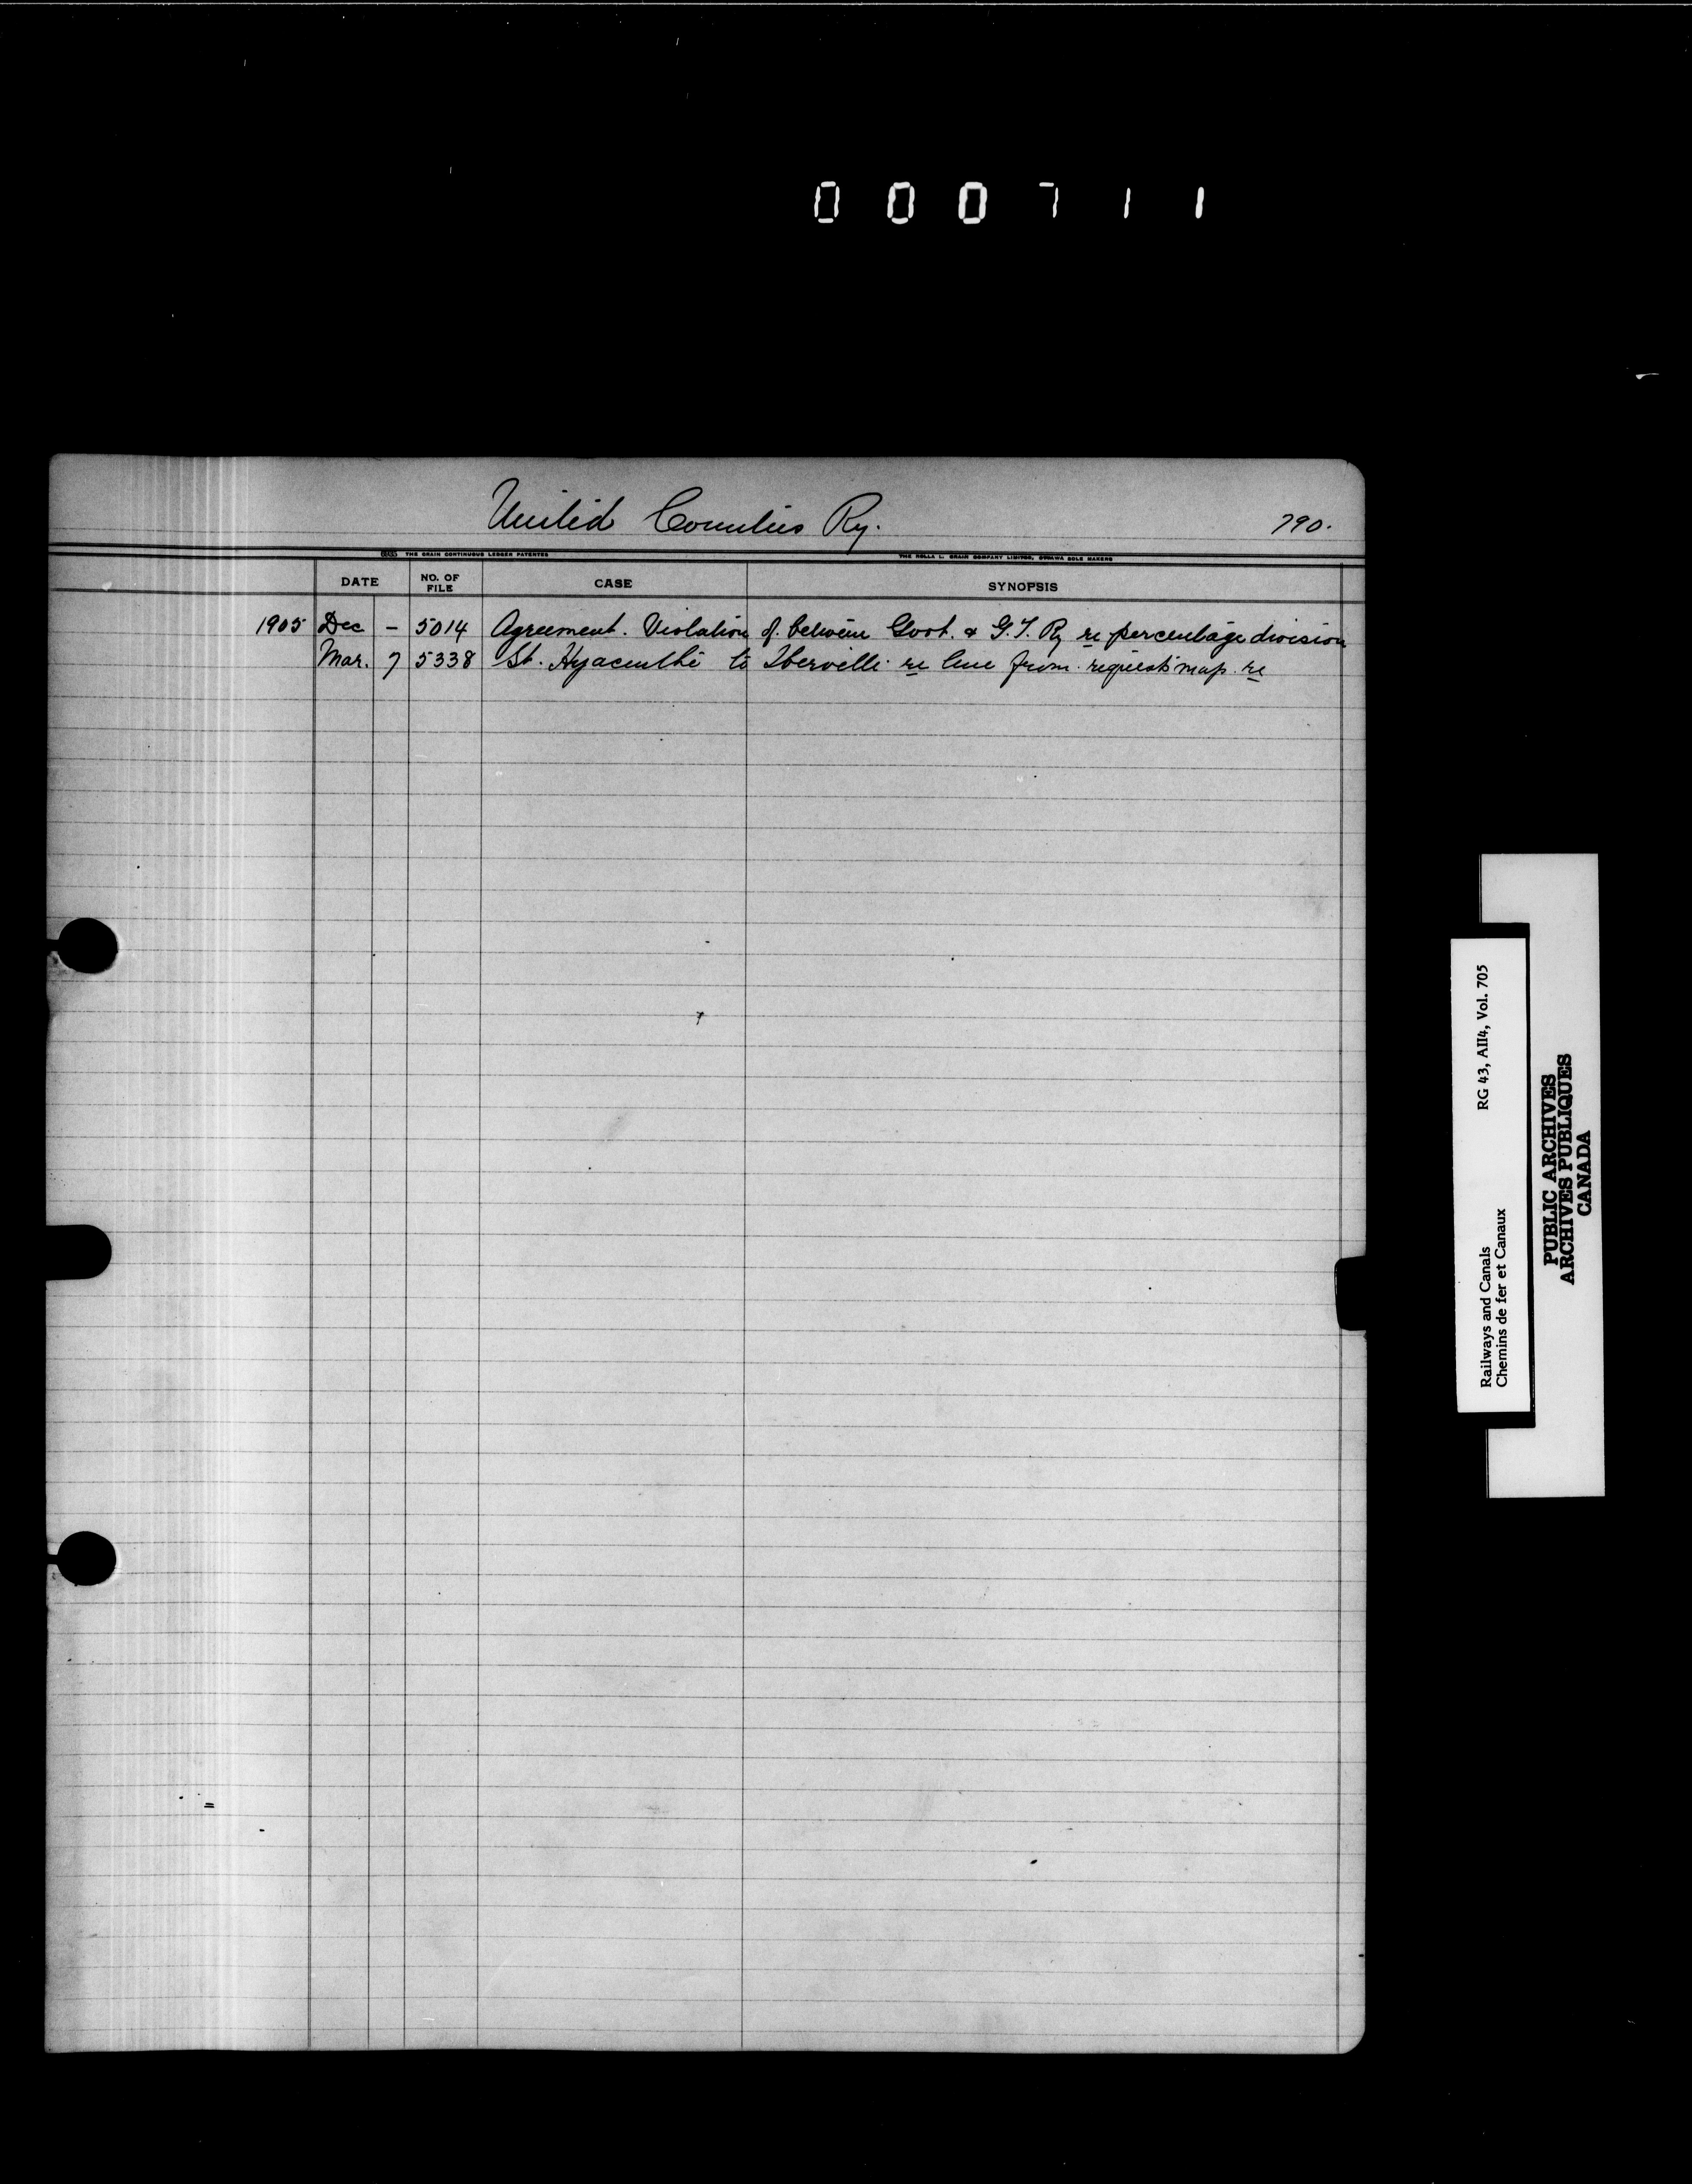 000711
United Counties Ry. 790.
THE CRAIN CONTINUOUS LEDGER PATENTED THE ROLLA L. CRAIN COMPANY LIMITED, OTTAWA SOLE MAKERS
DATE NO. OF FILE CASE SYNOPSIS
1905 Dec - 5014 Agreement. Violation of. between Govt. & G.T. Ry re percentage division
Mar. 7 5338 St. Hyacinthe to Iberville re line from. request map. re
Railways and Canals RG 43, AII4, Vol. 705
Chemins de fer et Canaux
PUBLIC ARCHIVES
ARCHIVES PUBLIQUES
CANADA